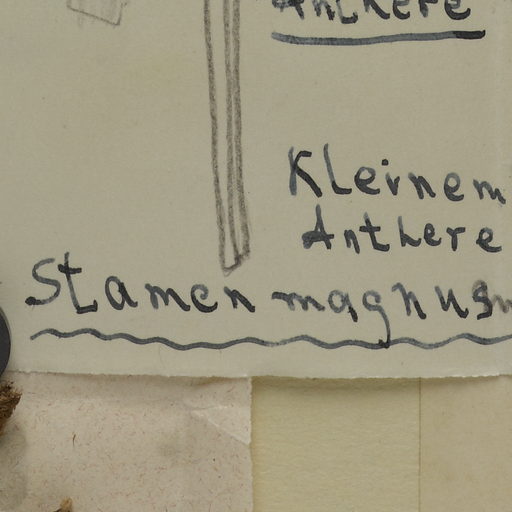 Anthere
Kleinem
Anthere
Stamen magnus